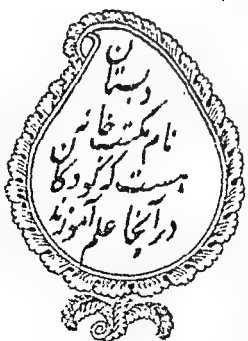 دبستان
نام مکتب خانه
هست که کودکان
در آنجا علم آموزند